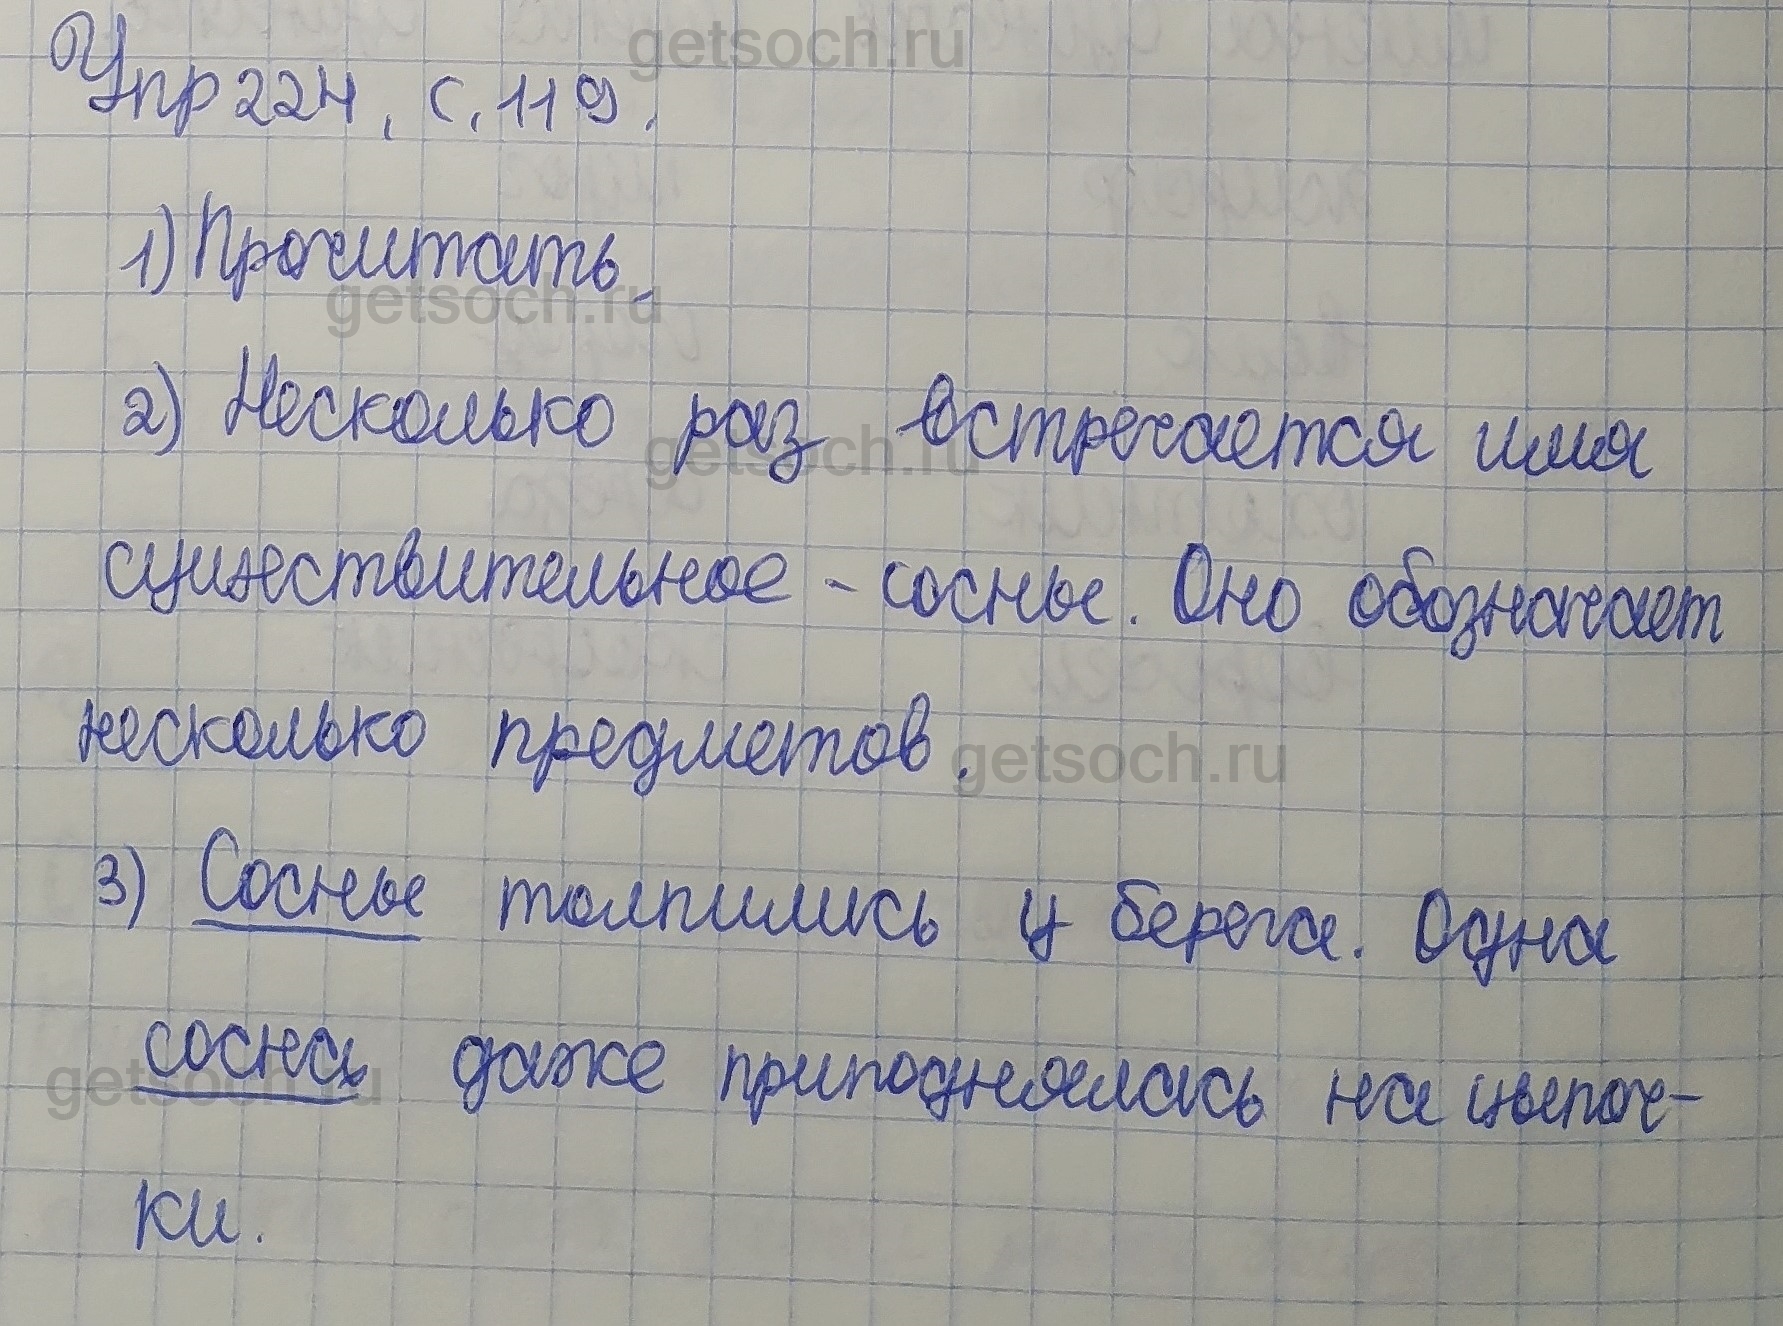 getsoch.ru
Упр 224, с. 119.
1) Прочитать.
getsoch.ru
2) Несколько раз встречается имя
getsoch.ru
существительное - сосны. Оно обозначает
несколько предметов.
getsoch.ru
3) Сосны толпились у берега. Одна
сосна даже приподнялась на цыпоч-
getsoch.ru
ки.